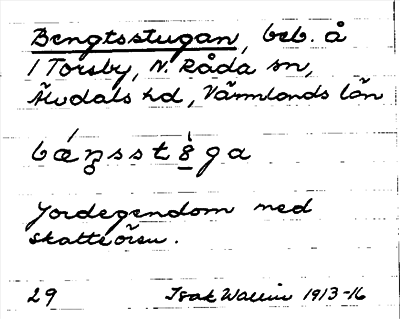 Bengtsstugan, beb. å
1 Torsby, N. Råda sn,
Älvdals hd, Värmlands län
bǽn̥sst8̀ga
Jordegendom med
skatteören.
29 Isak Wallin 1913-16